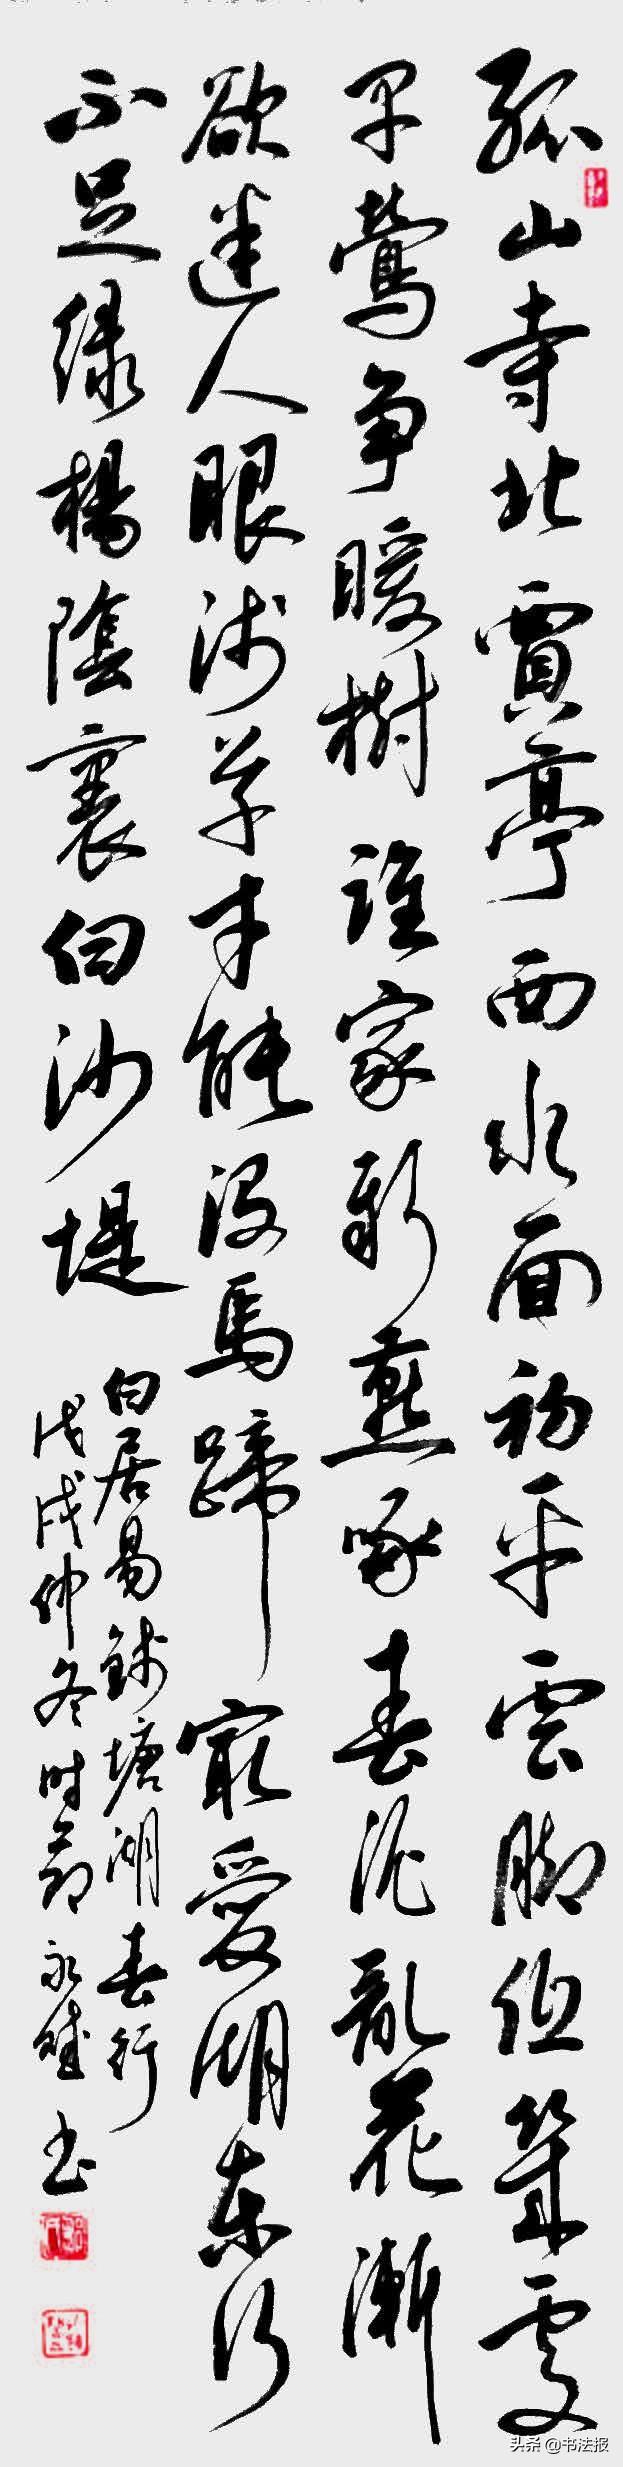 孤山寺北賈亭西水面初平雲脚低幾處
早鶯争暖樹誰家新燕啄春泥亂花漸
欲迷人眼淺草才能没馬蹄最愛湖東行
不足緑楊陰裏白沙堤
白居易錢塘湖春行
戊戌仲冬时節永书
头条 @书法报